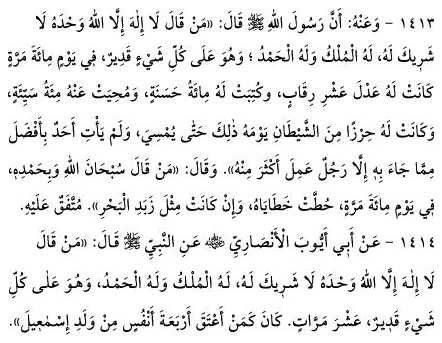 ١٤١٣ - وَعَنْهُ: أَنَّ رَسُولَ اللهِ ﷺ قَالَ: «مَنْ قَالَ لَا إِلٰهَ إِلَّا اللهُ وَحْدَهُ لَا
شَرِيكَ لَهُ، لَهُ الْمُلْكُ وَلَهُ الْحَمْدُ ؛ وَهُوَ عَلَى كُلِّ شَيْءٍ قَدِيرٌ، فِي يَوْمٍ مِائَةَ مَرَّةٍ
كَانَتْ لَهُ عَدْلَ عَشْرِ رِقَابٍ، وكُتِبَتْ لَهُ مِائَةُ حَسَنَةٍ، وَمُحِيَتْ عَنْهُ مِئَةُ سَيِّئَةٍ،
وَكَانَتْ لَهُ حِرْزًا مِنَ الشَّيْطَانِ يَوْمَهُ ذٰلِكَ حَتَّى يُمْسِيَ، وَلَمْ يَأْتِ أَحَدٌ بِأَفْضَلَ
مِمَّا جَاءَ بِهِ إِلَّا رَجُلٌ عَمِلَ أَكْثَرَ مِنْهُ». وَقَالَ: «مَنْ قَالَ سُبْحَانَ اللهِ وَبِحَمْدِهِ،
فِي يَوْمٍ مِائَةَ مَرَّةٍ، حُطَّتْ خَطَايَاهُ، وَإِنْ كَانَتْ مِثْلَ زَبَدِ الْبَحْرِ». مُتَّفَقٌ عَلَيْهِ.
١٤١٤ - عَنْ أَبِي أَيُّوبَ الْأَنْصَارِيِّ ﷺ عَنِ النَّبِيِّ ﷺ قَالَ: «مَنْ قَالَ
لَا إِلٰهَ إِلَّا اللهُ وَحْدَهُ لَا شَرِيكَ لَهُ، لَهُ الْمُلْكُ وَلَهُ الْحَمْدُ، وَهُوَ عَلٰى كُلِّ
شَيْءٍ قَدِيرٌ، عَشْرَ مَرَّاتٍ. كَانَ كَمَنْ أَعْتَقَ أَرْبَعَةَ أَنْفُسٍ مِنْ وَلَدِ إِسْمٰعِيلَ».